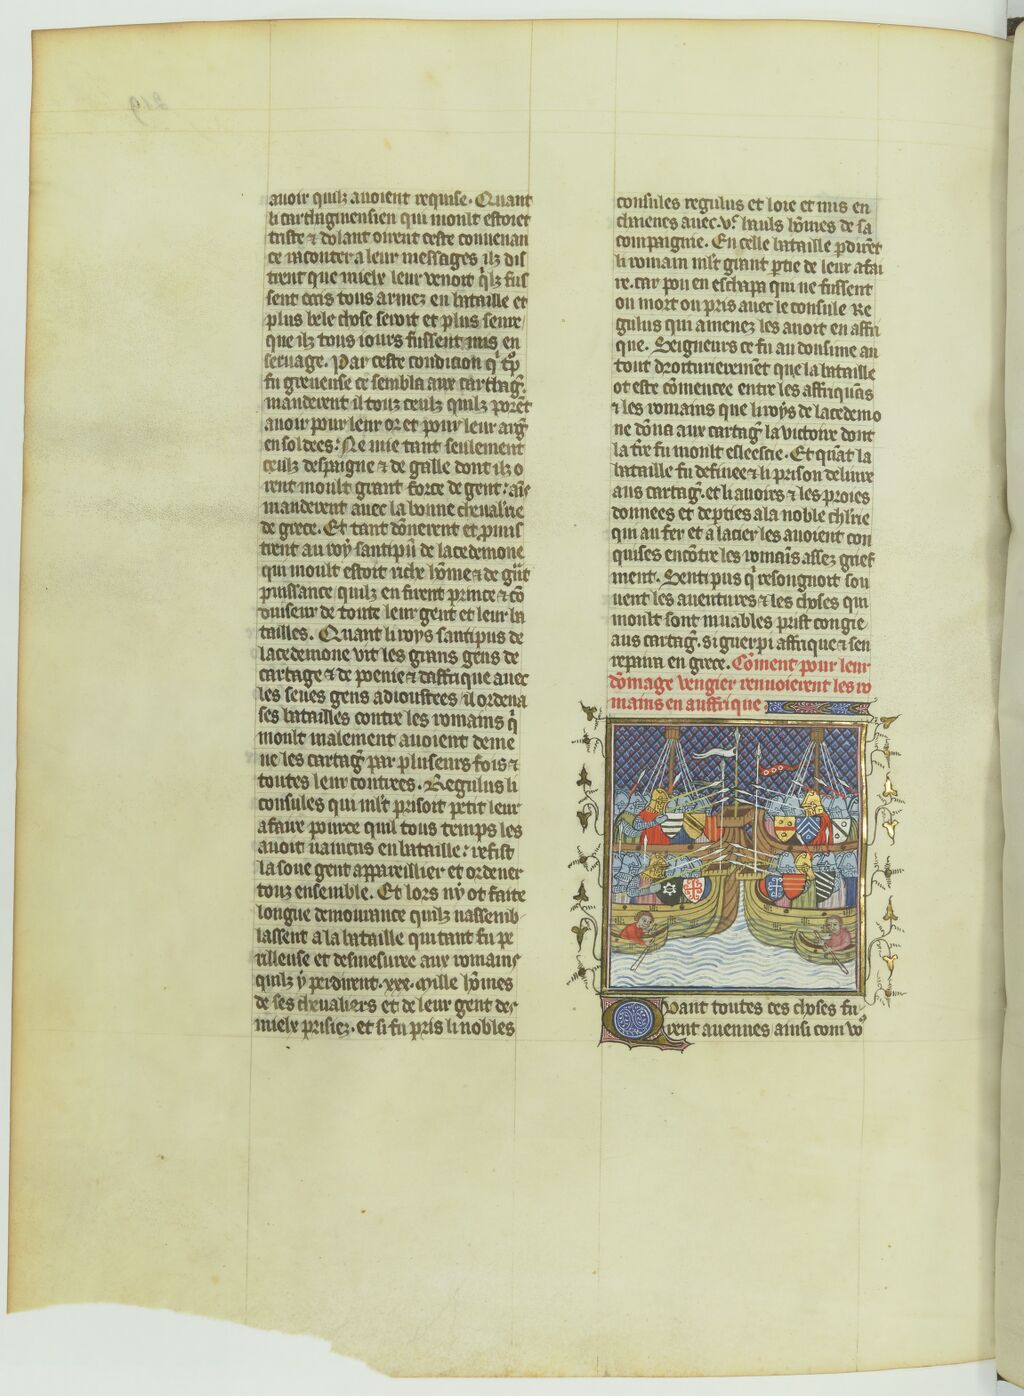 auoir quilz auoient requise. Quant
li cartaginensien qui moult estoiet
triste ⁊ dolant oirent ceste conuenan
ce raconter a leur messages ilz dis
trent que mielx leur venoit q̃lz fus
sent ocis tous armez en bataille et
plus bele chose seroit et plus seure
que ilz tous iours fussent mis en
seruage. Par ceste condicion q̃ tp̃
fu greueuse ce sembla aux cartag̃.
manderent il touz ceulz quilz porẽt
auoir pour leur or et pour leur arg̃
en soldees: Ne mie tant seulement
ceulz despaigne ⁊ de galle dont ilz o
rent moult grant force de gent: ais
manderent auec la bonne cheualrie
de grece. Et tant dõnerent et ꝓmis
trent au roy santipũ de lacedemone
qui moult estoit riche hõme ⁊ de grãt
puissance quilz en firent prince ⁊ cõ
duiseur de toute leur gent et leur ba
tailles. Quant li roys santipus de
lacedemone vit les grans gens de
cartage ⁊ de poenie ⁊ daffrique auec
les seues gens adioustees il ordena
ses batailles contre les romains q̃
moult malement auoient deme
ne les cartag̃ par pluseurs fois ⁊
toutes leur contrees. Regulus li
consules qui mlt prisoit petit leur
afaire pource quil tous temps les
auoit uaincus en bataille: refist
la soue gent appareillier et ordener
touz ensemble. Et lors ny ot faite
longue demourance quilz nassemb
lassent a la bataille qui tant fu pe
rilleuse et desmesuree aux romains
quilz y perdirent .xxx. Mille hõmes
de ses cheualiers et de leur gent des
mielx prisiez. et si fu pris li nobles
consules regulus et loie et mis en
chaienes auec .vc. hauls hõmes de sa
compaignie. En celle bataille ꝑdirẽt
li romain mlt grant ꝑtie de leur afai
re. car pou en eschapa qui ne fussent
ou mort ou pris auec le consule Re
gulus qui amenez les auoit en affri
que. Seigneurs ce fu au dousime an
tout droiturieremẽt que la bataille
ot este cõmencee entre les affriquãs
⁊ les romains que li roys de lacedemo
ne dõna aux cartag̃ la victoire dont
la t̃re fu moult esleescie. Et quãt la
bataille fu definee ⁊ li prison deliure
aus cartag̃. et li auoirs ⁊ les proies
donnees et departies a la noble chlrie
qui au fer et a lacier les auoient con
quises encõtre les romaĩs assez grief
ment. Sentipus q̃ resongnoit sou
uent les auentures ⁊ les choses qui
moult sont muables prist congie
aus cartag̃. si guerpi affrique ⁊ sen
repaira en grece. Cõment pour leur
dõmage vengier renuoierent les ro
mains en auffrique
Quant toutes ces choses fu
rent auenues ainsi com vo9